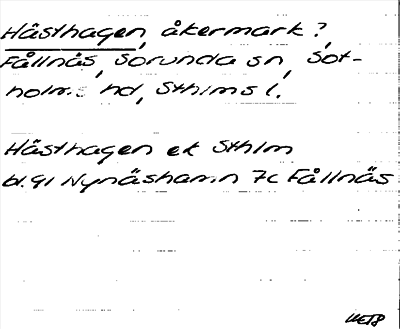 Hästhagen, åkermark?,
Fållnäs, Sorunda sn, Sot-
holms hd, Sthlms l.
Hästhagen ek Sthlm
bl. 91 Nynäshamn 7c Fållnäs